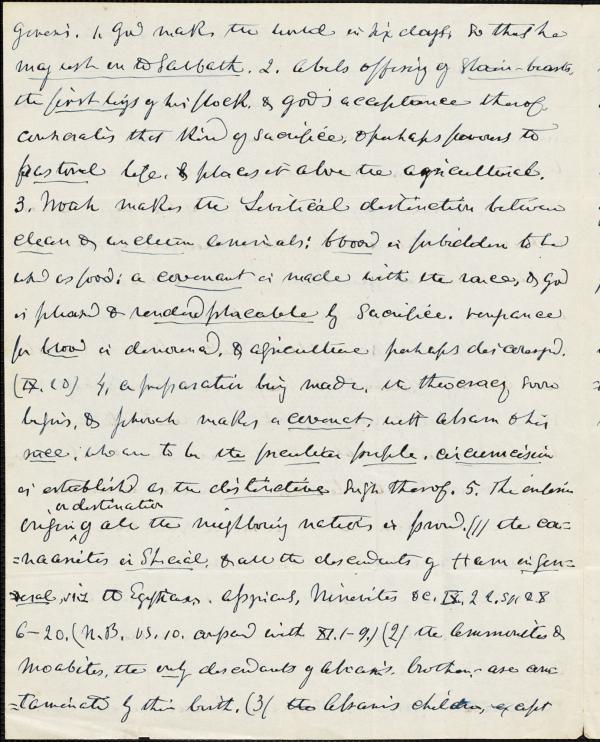 Genesis. 1. God makes the world in six days, so that he
may rest on the Sabbath. 2. Abels offering of slain-beasts,
the firstlings of his flock, & God's acceptance thereof
consecrates that kind of sacrifice, & perhaps favours to
pastoral life, & places it above the agricultural.
3. Noah makes the Levitical distinction between
clean & unclean animals: blood is forbidden to be
used as food: a covenant is made with the race, & God
is pleased & rendered placable by sacrifice. vengeance
for blood is denounced, & agriculture perhaps discouraged.
(IX. 20) 4. a preparation being made, the theocracy soon
begins, & Jehovah makes a covenant with Abram & his
race, who are to be the peculiar people. circumcision
is established as the distinctive sign thereof. 5. The
or destination
origin of all the neighboring nations is (1) the Ca=
=naanites in special, & all the descendents of Ham in gen=
=eral, viz the Egyptians, Assyrians, Ninevites &c. IX. 22,
6-20. (N.B. vs. 10. compared with XI. 1-9.) (2) the Ammonites &
Moabites, the only descendants of Abram's brother, are con=
=taminated by their birth. (3) the Abram's children, except